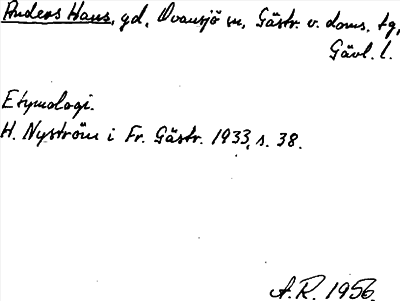 Anders Hans, gd, Ovansjö sn, Gästr. v. doms. tg,
Gävl. l.
Etymologi.
H. Nyström i Fr. Gästr. 1933, s. 38.
A.R. 1956.